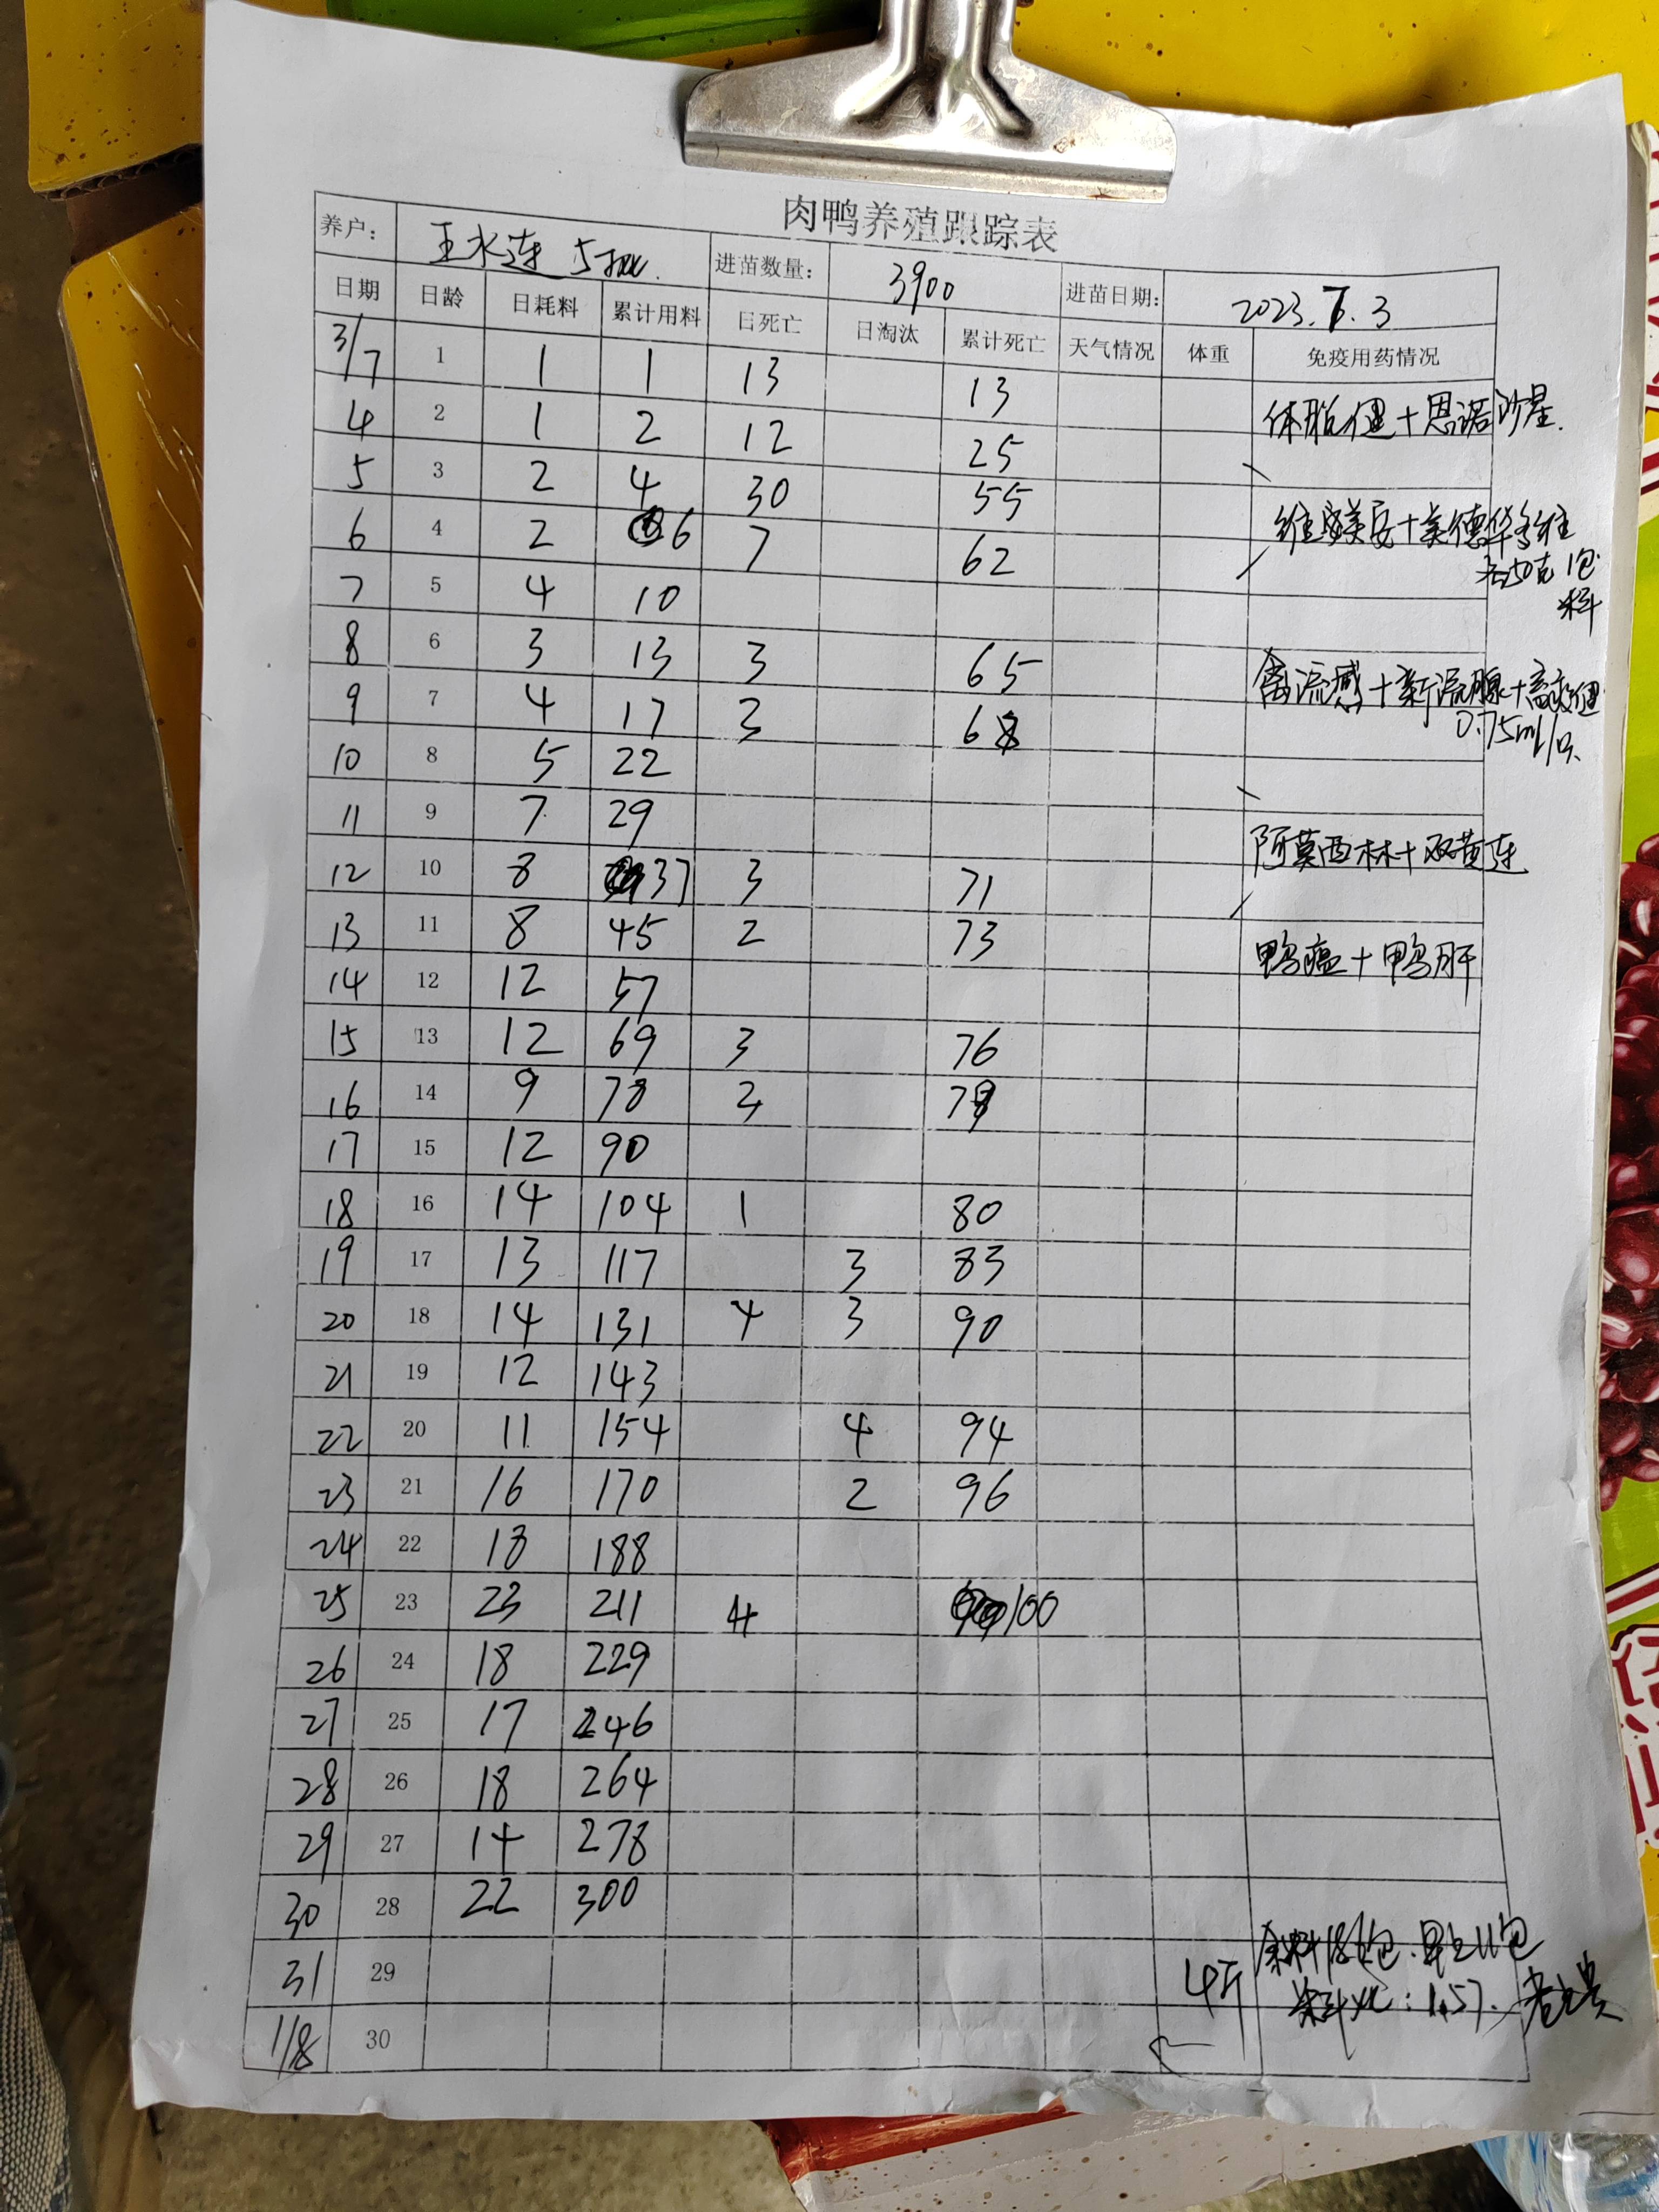 肉鸭养殖跟踪表
养户: 王水连 5批. 进苗数量: 3900 进苗日期: 2023.7.3
日期 日龄 日耗料 累计用料 日死亡 日淘汰 累计死亡 天气情况 体重 免疫用药情况
3/7 1 1 1 13 13
4 2 1 2 12 25 体肽健+恩诺沙星.
5 3 2 4 30 55
6 4 2 6 7 62 维 美安+美德华多维
7 5 4 10 250克 1包
料
8 6 3 13 3 65 禽流感+新流腺+高效健
9 7 4 17 3 68 0.75ml/只
10 8 5 22
11 9 7 29 阿莫西林+双黄连
12 10 8 37 3 71
13 11 8 45 2 73 鸭瘟+鸭肝
14 12 12 57
15 13 12 69 3 76
16 14 9 78 3 79
17 15 12 90
18 16 14 104 1 80
19 17 13 117 3 83
20 18 14 131 4 3 90
21 19 12 143
22 20 11 154 4 94
23 21 16 170 2 96
24 22 18 188
25 23 23 211 4 100
26 24 18 229
27 25 17 246
28 26 18 264
29 27 14 278
30 28 22 300
31 29 4斤 余料 包. 11包
1/8 30 料比: 1.57.